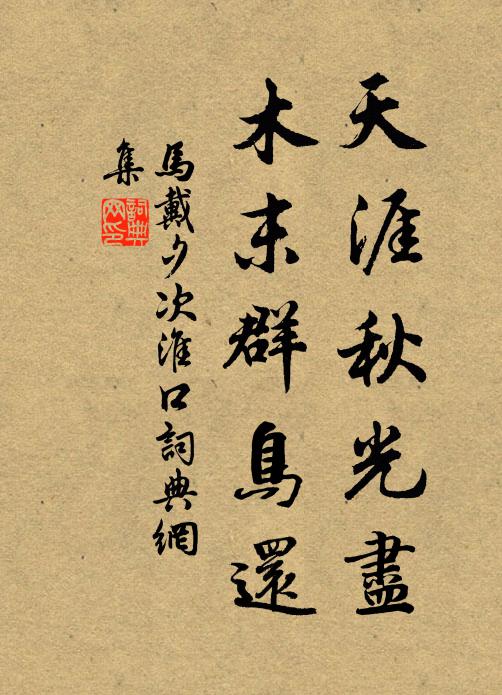 天涯秋光盡
木末群鳥還
馬戴夕次淮口詞典網
集
詞典網印